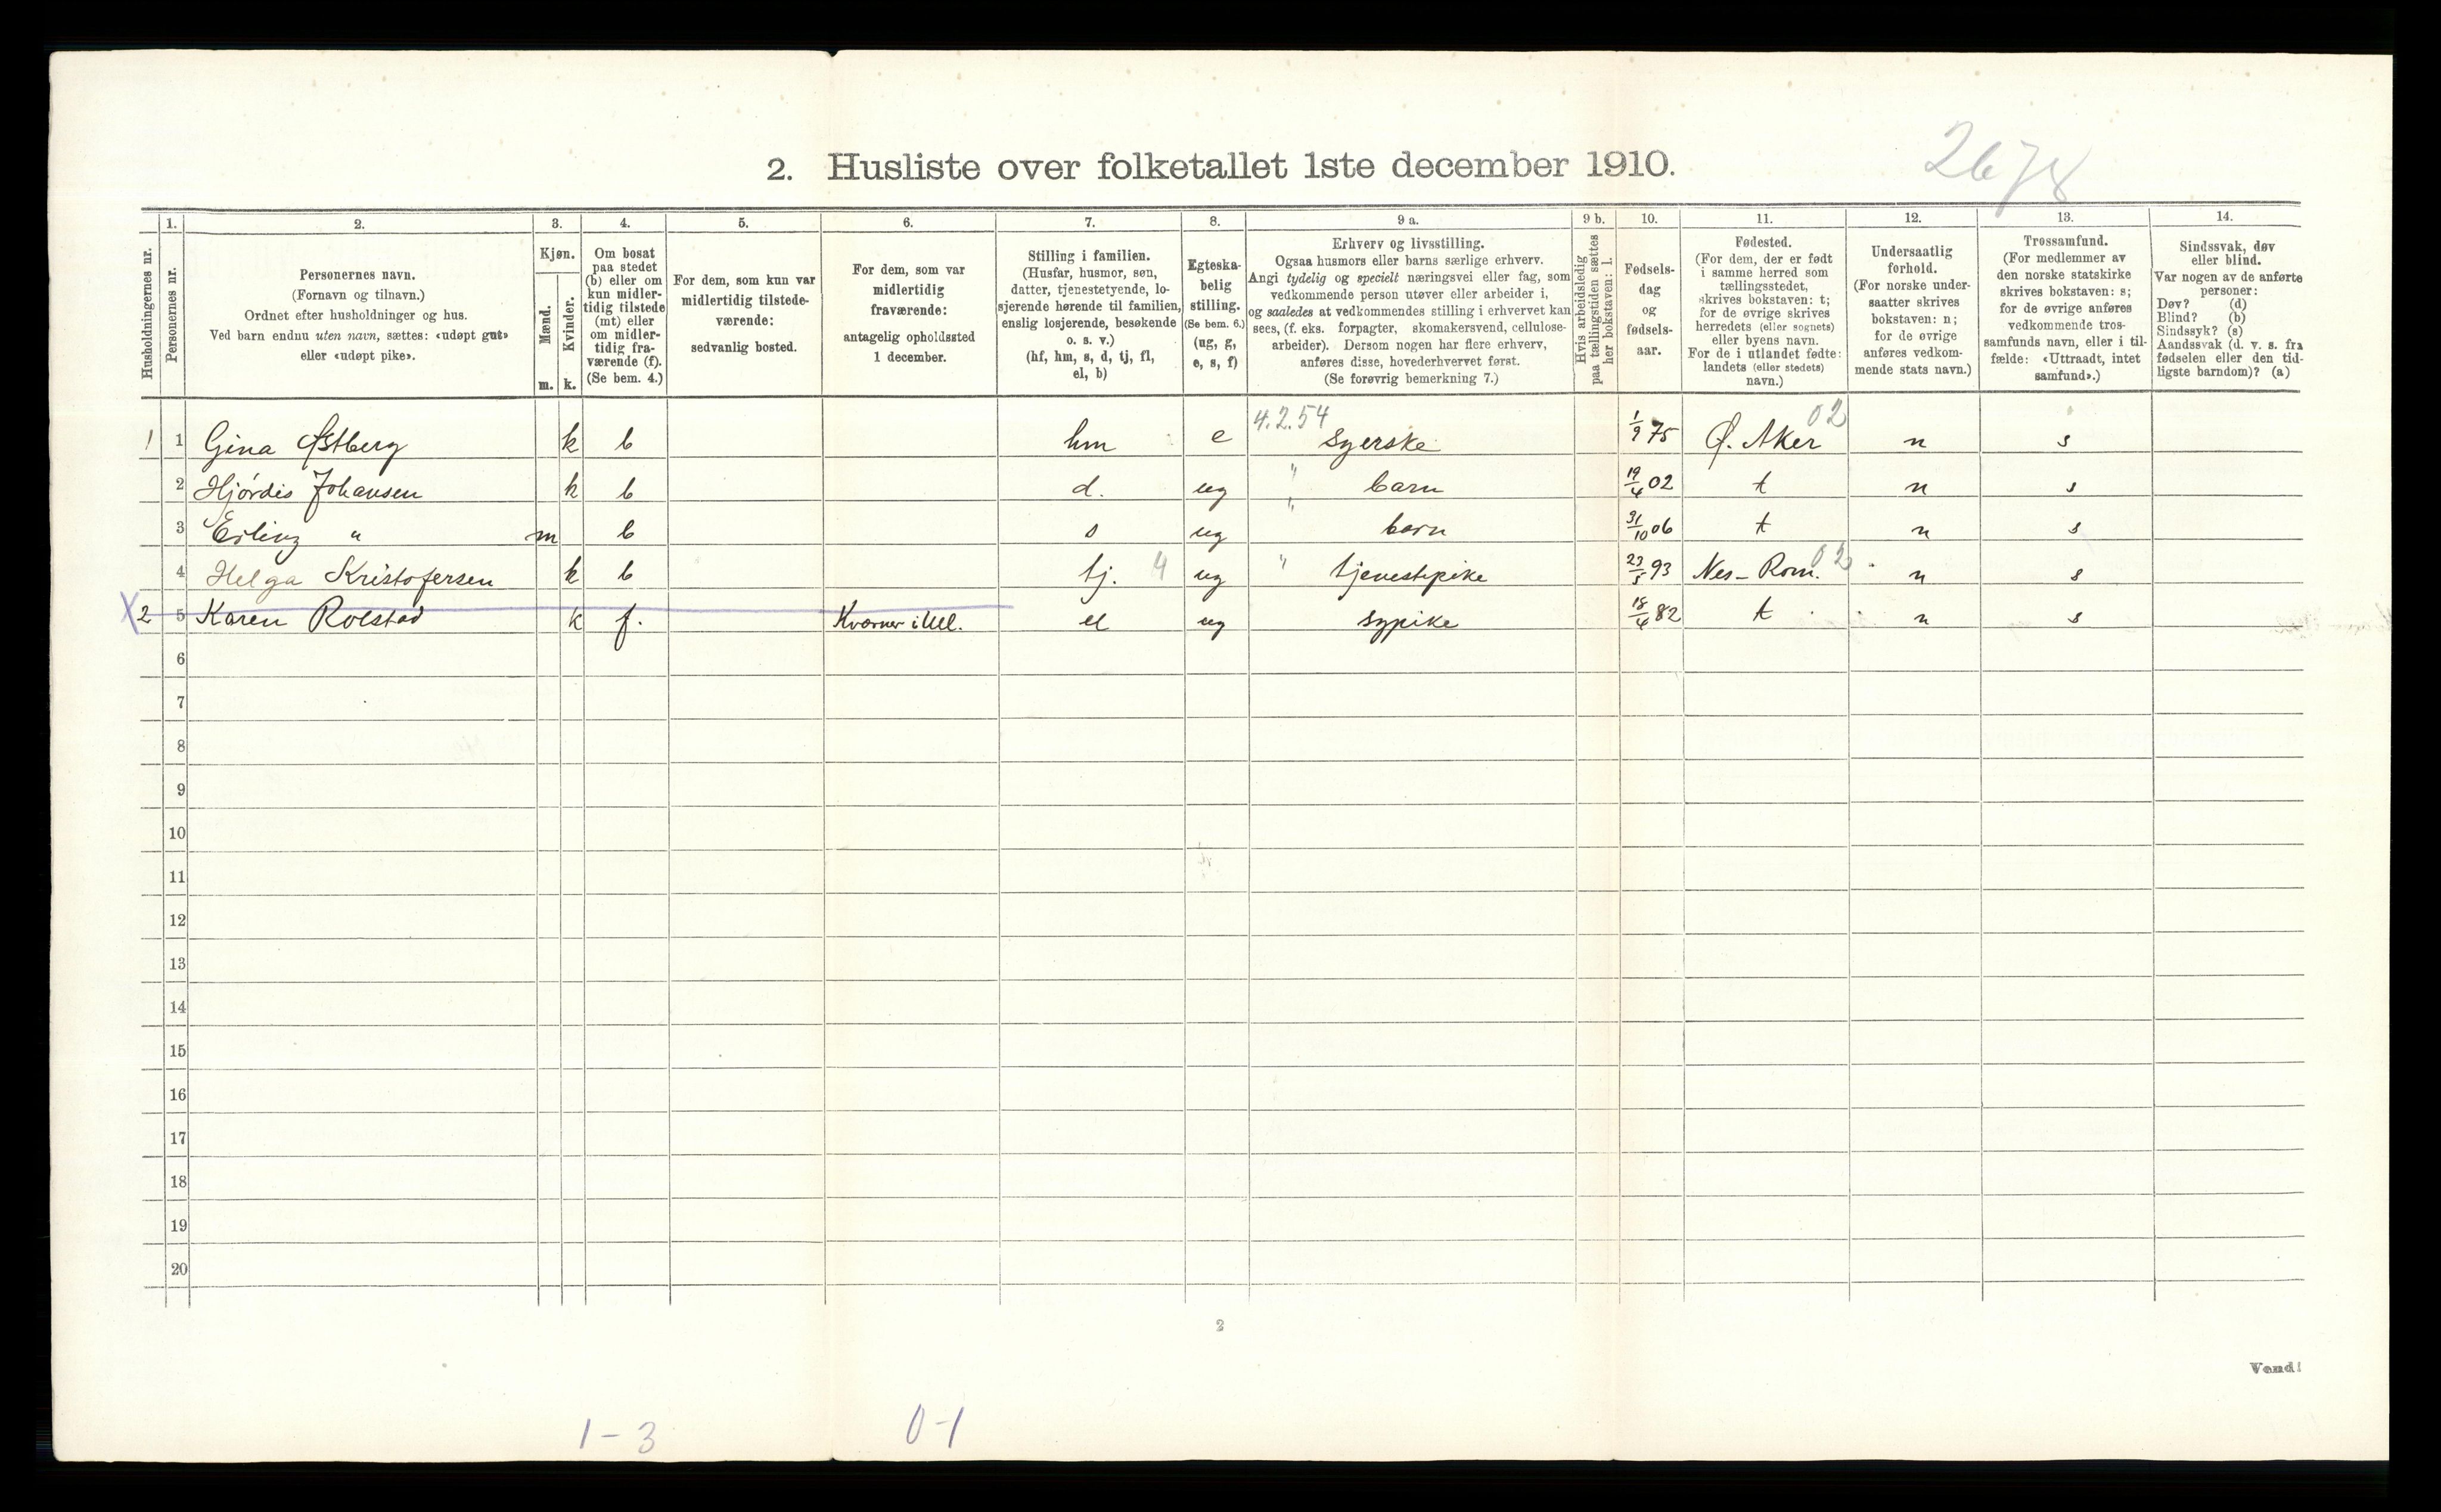 2. Husliste over folketallet 1ste december 1910.
2678
Husholdningernes nr.
1. Personernes nr.
2. Personernes navn.
(Fornavn og tilnavn.)
Ordnet efter husholdninger og hus.
Ved barn endnu uten navn, sættes: «udøpt gut»
eller «udøpt pike».
3. Kjøn.
Mænd. m.
Kvinder. k.
4. Om bosat
paa stedet
(b) eller om
kun midler-
tidig tilstede
(mt) eller
om midler-
tidig fra-
værende (f).
(Se bem. 4.)
5. For dem, som kun var
midlertidig tilstede-
værende:
sedvanlig bosted.
6. For dem, som var
midlertidig
fraværende:
antagelig opholdssted
1 december.
7. Stilling i familien.
(Husfar, husmor, søn,
datter, tjenestetyende, lo-
sjerende hørende til familien,
enslig losjerende, besøkende
o. s. v.)
(hf, hm, s, d, tj, fl,
el, b)
8. Egteska-
belig
stilling.
(Se bem. 6.)
(ug, g,
e, s, f)
9 a. Erhverv og livsstilling.
Ogsaa husmors eller barns særlige erhverv.
Angi tydelig og specielt næringsvei eller fag, som
vedkommende person utøver eller arbeider i,
og saaledes at vedkommendes stilling i erhvervet kan
sees, (f. eks. forpagter, skomakersvend, cellulose-
arbeider). Dersom nogen har flere erhverv,
anføres disse, hovederhvervet først.
(Se forøvrig bemerkning 7.)
9 b. Hvis arbeidsledig
paa tællingstiden sættes
her bokstaven: l.
10. Fødsels-
dag
og
fødsels-
aar.
11. Fødested.
(For dem, der er født
i samme herred som
tællingsstedet,
skrives bokstaven: t;
for de øvrige skrives
herredets (eller sognets)
eller byens navn.
For de i utlandet fødte:
landets (eller stedets)
navn.)
12. Undersaatlig
forhold.
(For norske under-
saatter skrives
bokstaven: n;
for de øvrige
anføres vedkom-
mende stats navn.)
13. Trossamfund.
(For medlemmer av
den norske statskirke
skrives bokstaven: s;
for de øvrige anføres
vedkommende tros-
samfunds navn, eller i til-
fælde: «Uttraadt, intet
samfund».)
14. Sindssvak, døv
eller blind.
Var nogen av de anførte
personer:
Døv? (d)
Blind? (b)
Sindssyk? (s)
Aandssvak (d. v. s. fra
fødselen eller den tid-
ligste barndom)? (a)
4.2.54 02
1 1 Gina Østberg k b hm e Syerske 1/9 75 Ø. Aker n s
2 Hjørdis Johansen k b d. ug " barn 19/4 02 t n s
3 Erling " m b s ug " barn 31/10 06 t n s
4 Helga Kristofersen k b tj. 4 ug " tjenestepike 23/5 93 Nes - Rom. 02 n s
X 2 5 Karen Rolstad k f. Kværner i Ull. el ug sypike 18/4 82 t n s
6
7
8
9
10
11
12
13
14
15
16
17
18
19
20
2
Vend!
1 - 3 0-1